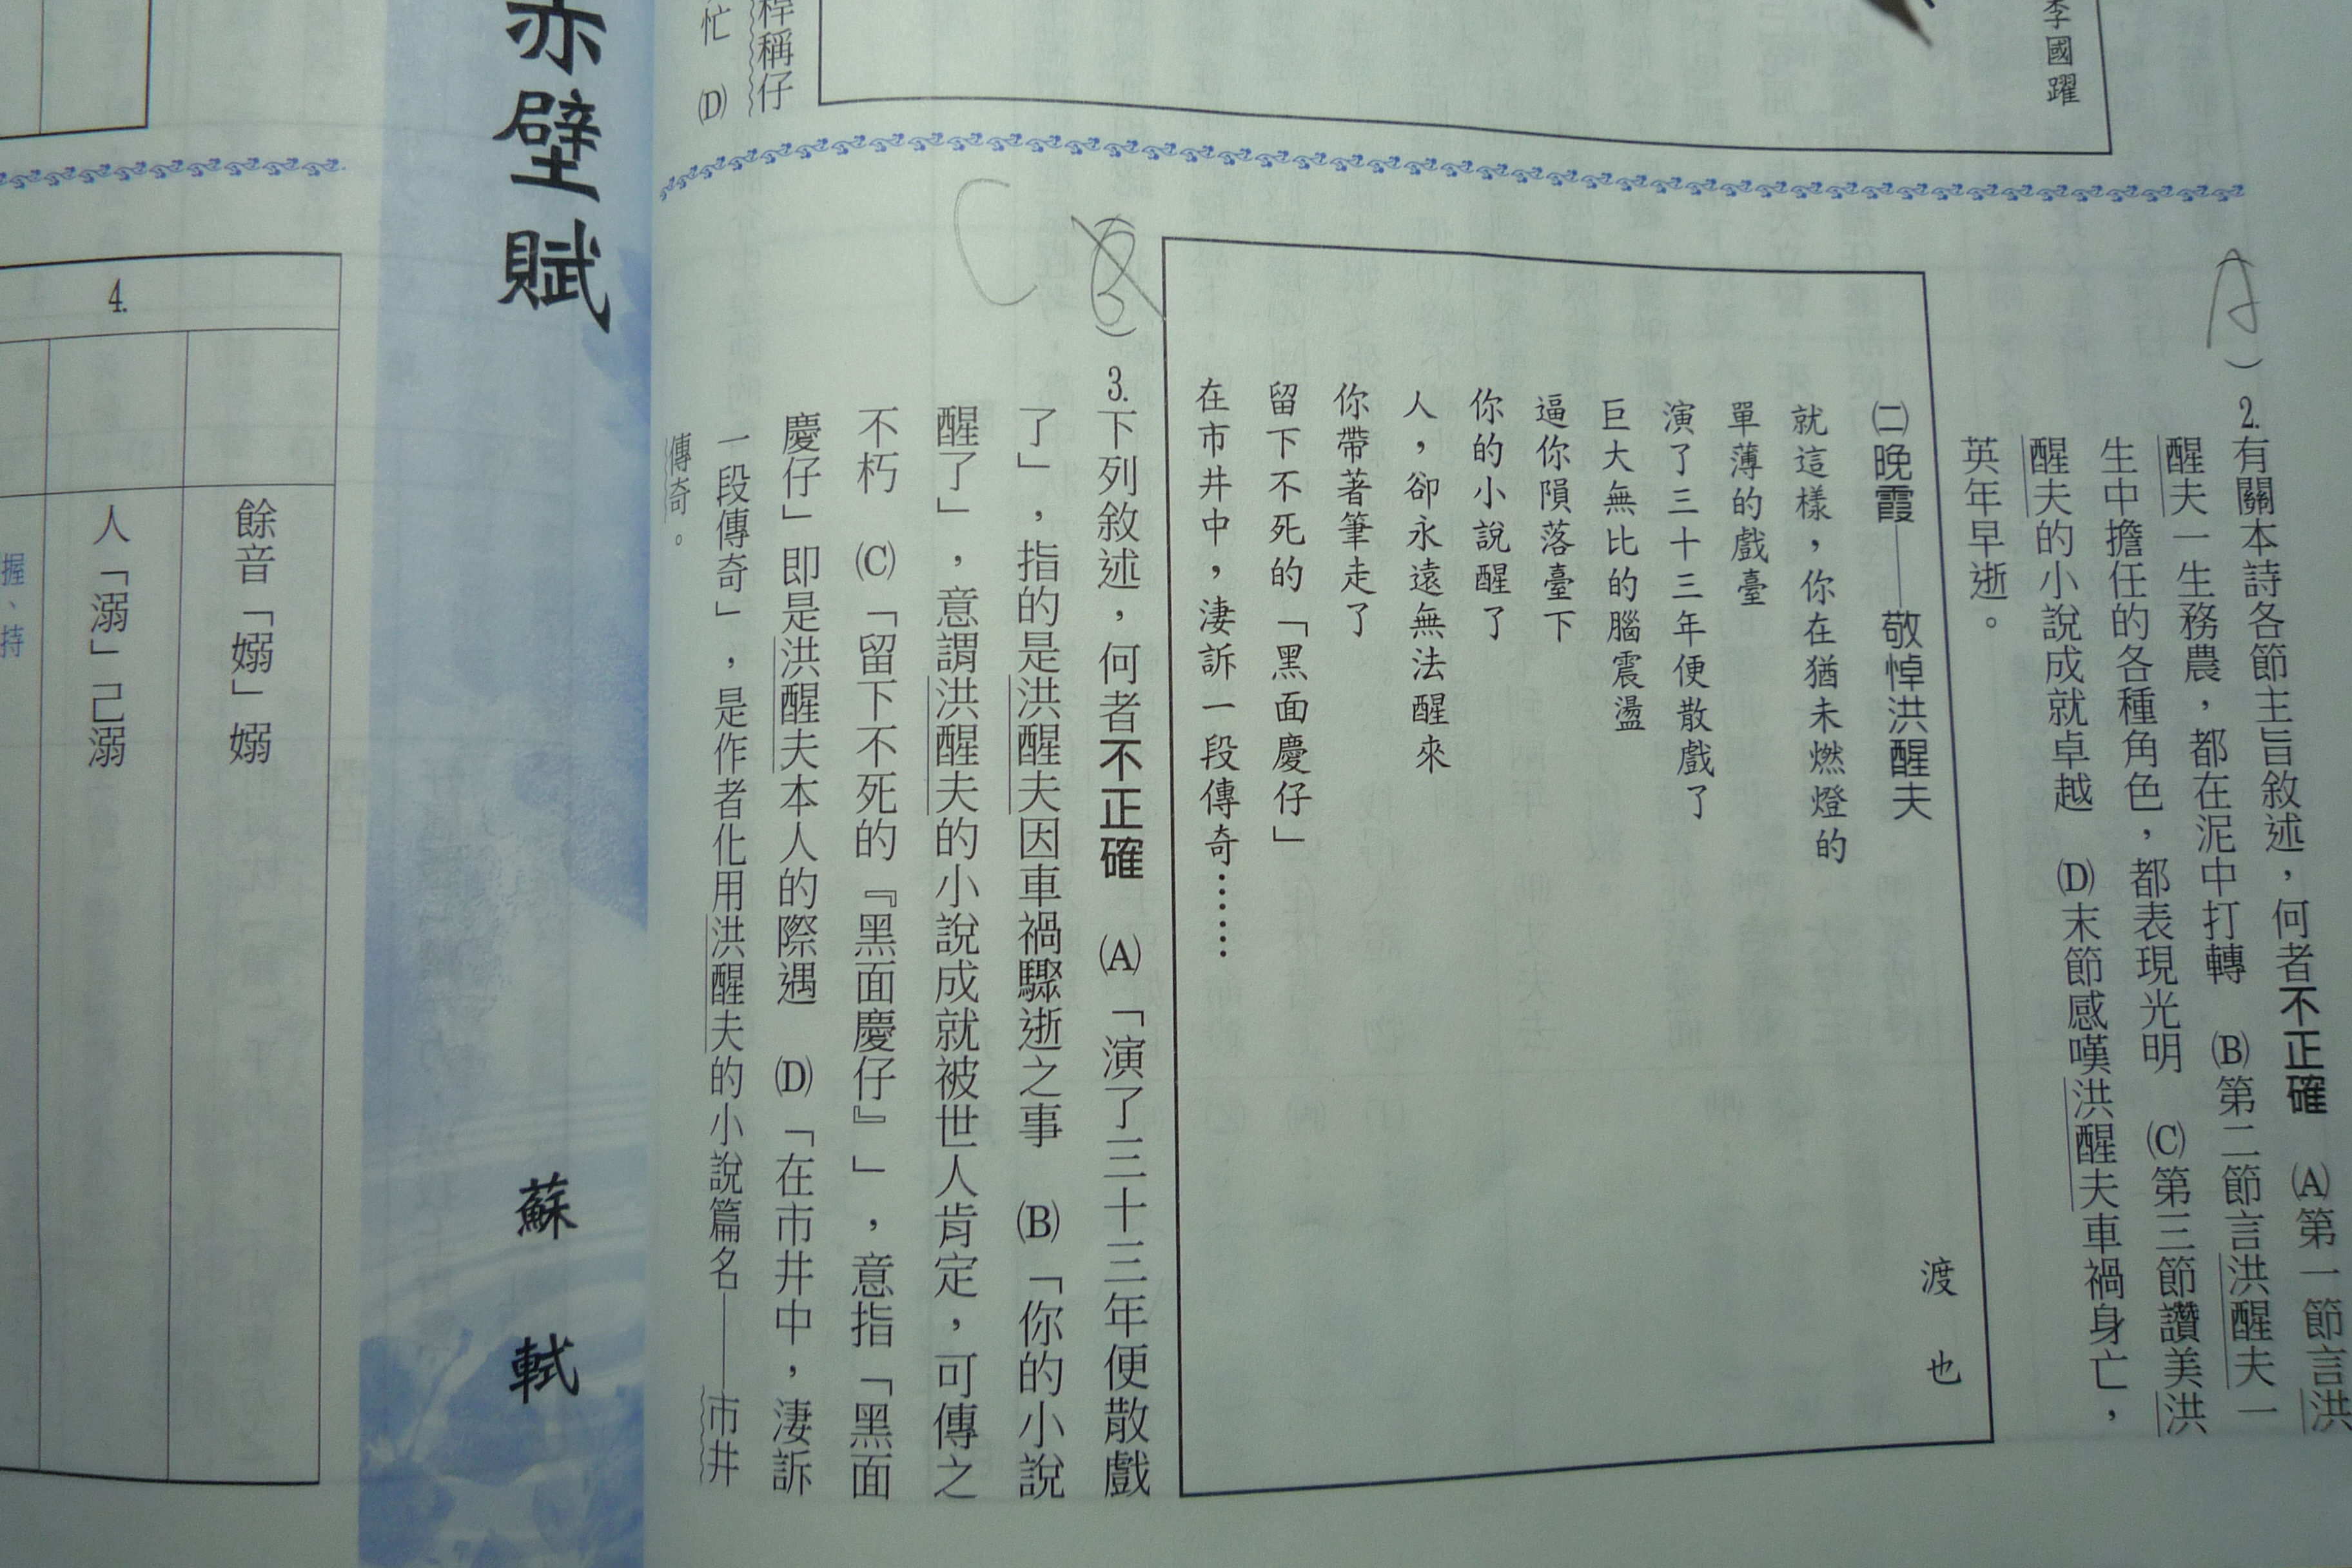 李國躍
稱仔
忙 (D)
A
) 2.有關本詩各節主旨敘述，何者不正確 (A)第一節言洪
醒夫一生務農，都在泥中打轉 (B)第二節言洪醒夫一
生中擔任的各種角色，都表現光明 (C)第三節讚美洪
醒夫的小說成就卓越 (D)末節感嘆洪醒夫車禍身亡，
英年早逝。
㈡晚霞——敬悼洪醒夫
渡也
就這樣，你在猶未燃燈的
單薄的戲臺
演了三十三年便散戲了
巨大無比的腦震盪
逼你隕落臺下
你的小說醒了
人，卻永遠無法醒來
你帶著筆走了
留下不死的「黑面慶仔」
在市井中，淒訴一段傳奇……
B
C
) 3.下列敘述，何者不正確 (A)「演了三十三年便散戲
了」，指的是洪醒夫因車禍驟逝之事 (B)「你的小說
醒了」，意謂洪醒夫的小說成就被世人肯定，可傳之
不朽 (C)「留下不死的『黑面慶仔』」，意指「黑面
慶仔」即是洪醒夫本人的際遇 (D)「在市井中，淒訴
一段傳奇」，是作者化用洪醒夫的小說篇名——市井
傳奇。
赤壁賦
蘇軾
4.
餘音「嫋」嫋
人「溺」己溺
握、持